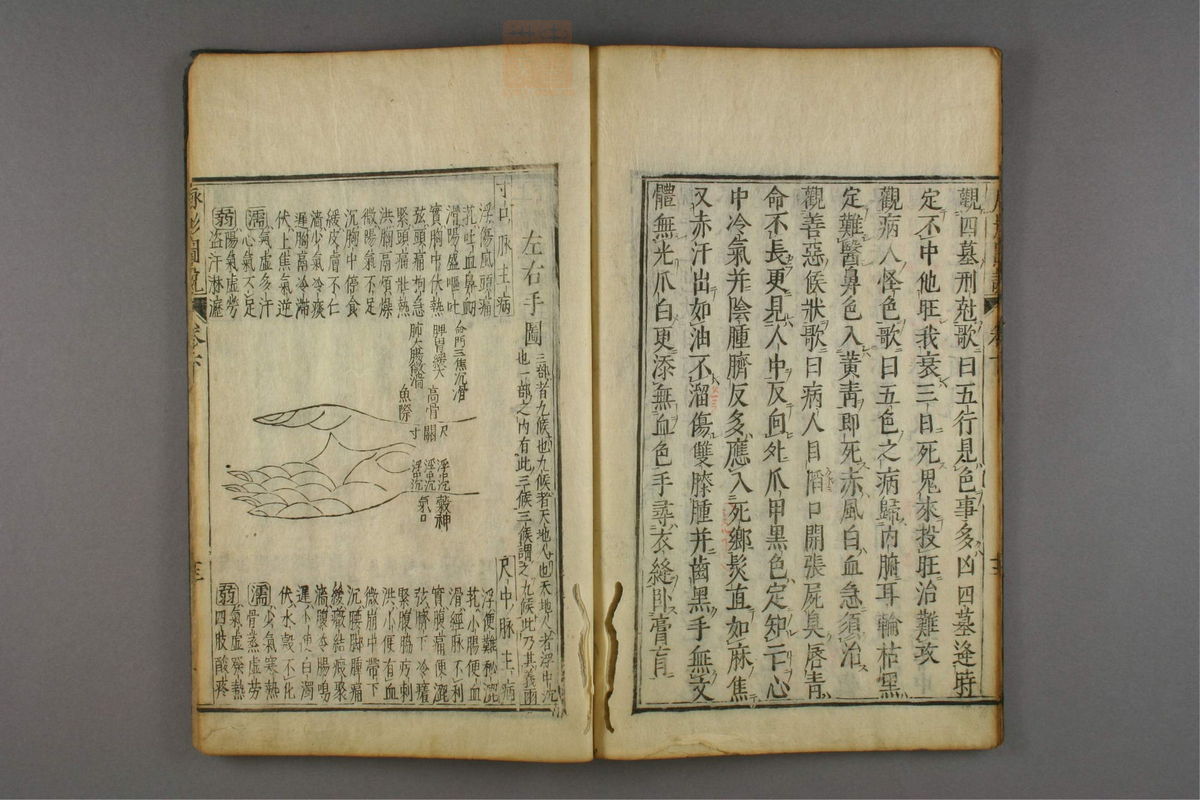 觀四墓刑尅歌曰五行見色事多凶四墓逢時
定不中他旺我衰三日死鬼來投旺治難攻
觀病人怪色歌曰五色之病歸內腑耳輪枯黑
定難醫鼻色入黃靑即死赤風白血急須治
觀善惡候狀歌曰病人目陷口開張屍臭唇靑
命不長更見人中反向外爪甲黑色定知亡心
中冷氣并陰腫臍反多應入死鄉髮直如麻焦
又赤汗出如油不溜傷雙膝腫并齒黑手無文
體無光爪白更添無血色手尋衣縫卧膏肓
左右手圖
三部者九候也九候者天地人也天地人者浮中沉
也一部之內有此三候三候謂之九候此乃其義爾
寸口脉主病
浮傷風頭痛
芤吐血鼻衄
滑陽盛嘔吐
實胸中伏熱
弦頭痛拘急
緊頭痛壯熱
洪胸高煩燥
微陽氣不足
沉胸中停食
緩皮膚不仁
濇少氣冷痰
遲胸高冷滯
伏上焦氣逆
濡氣虛多汗
心氣不足
弱陽氣虛勞
盜汗淋瀝
命門三焦沉滑
脾胃緩大
肺大腸微濇
高骨
魚際
尺
關
寸
浮中沉
浮中沉
浮中沉
穀神
氣口
尺中脉主病
浮便難秘澀
芤小腸便血
滑經脉不利
實腹痛便澀
弦臍下冷
緊腹脇疼刺
洪小便有血
微崩中帶下
沉腰脚脾痛
緩癥結瘕聚
濇腹冷腸鳴
遲小便白濁
伏水穀不化
濡少氣寒熱
骨蒸虛勞
弱氣虛發熱
四肢酸疼
脉影圖說